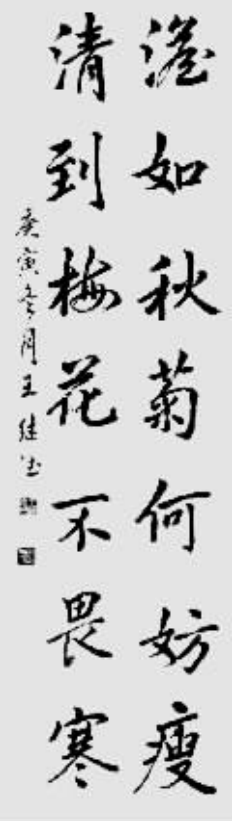 澹如秋菊何妨瘦
清到梅花不畏寒
庚寅冬月王继